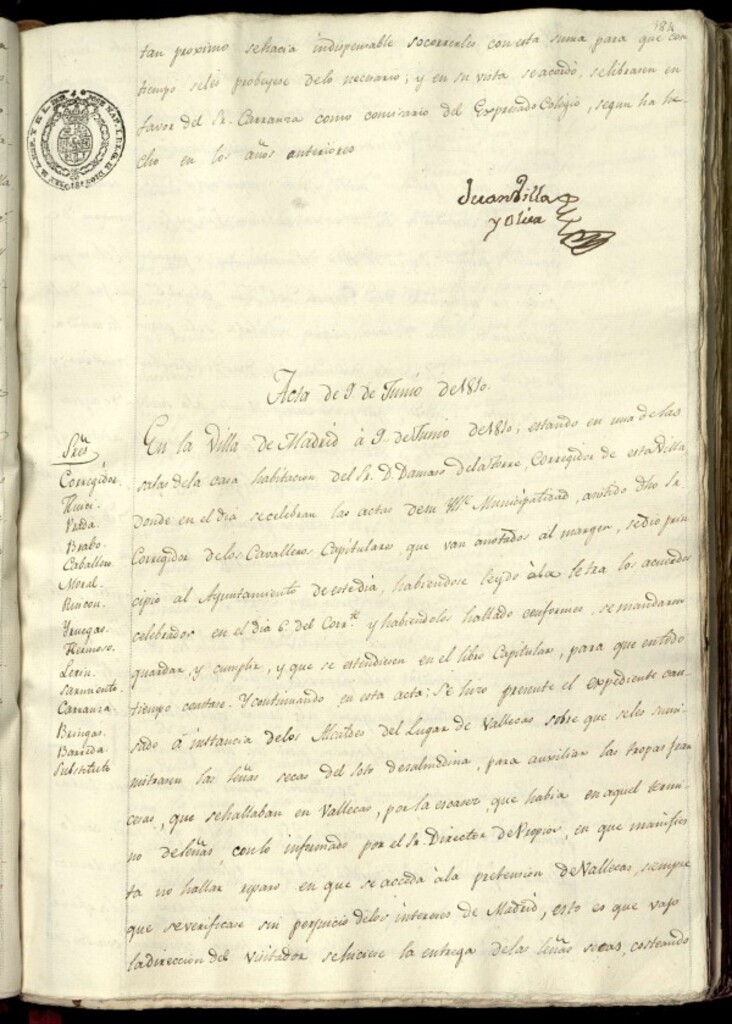 184
tan proximo sehacia indispensable socorrerles con esta suma para que con
tiempo seles probeyese delo necesario; y en su vista seacordó, selibrasen en
favor del Sr. Carranza como comisario del Expresado Colegio, segun ha he-
cho en los años anteriores
Juan Villa
y Olier
Acta de 9 de Junio de 1810.
Sres
Corregidor.
Prada.
Brabo.
Caballero.
Moral.
Rincon.
Yruegas.
Hermoso.
Lerin.
Sarmiento.
Carranza.
Bringas.
Barreda.
Substituto
En la Villa de Madrid á 9 de Junio de 1810; estando en una de las
salas dela casa habitacion del Sr. D. Damaso dela Torre, Corregidor de esta Villa
donde en el dia secelebran las actas desu Mte. Municipalidad, asistido dho Sr.
Corregidor delos Cavalleros Capitulares, que van anotados al margen, sedió prin
cipio al Ayuntamiento deestedia, habiendose leydo àla letra los acuerdos
celebrados en el dia 6 del Corrte. y habiendolos hallado conformes, semandaron
guardar, y cumplir, y que se estendiesen en el libro Capitular, para que entodo
tiempo constare. Y continuando en esta acta: Se hizo presente el expediente cau-
sado á instancia delos Alcaldes del Lugar de Vallecas sobre que seles sumi-
nistrasen las leñas secas del soto desalmedina, para auxiliar las tropas fran
cesas, que sehallaban en Vallecas, por la escasez que habia en aquel termi-
no deleñas, conlo informado por el Sr. Director dePropios, en que manifies
ta no hallar reparo en que se acceda àla pretension deVallecas, siempre
que severificase sin perjuicio delos intereses de Madrid, esto es que vajo
ladireccion del visitador sehiciese la entrega delas leñas secas, costeando